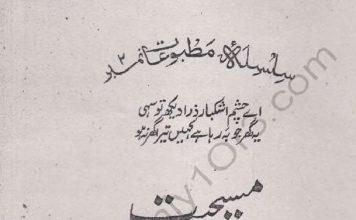 سلسلۂ مطبوعات نمبر ۲
اے چشم اشکبار ذرا دیکھ تو سہی
یہ گھر جو بہہ رہا ہے کہیں تیرا گھر نہ ہو
مسیحیت